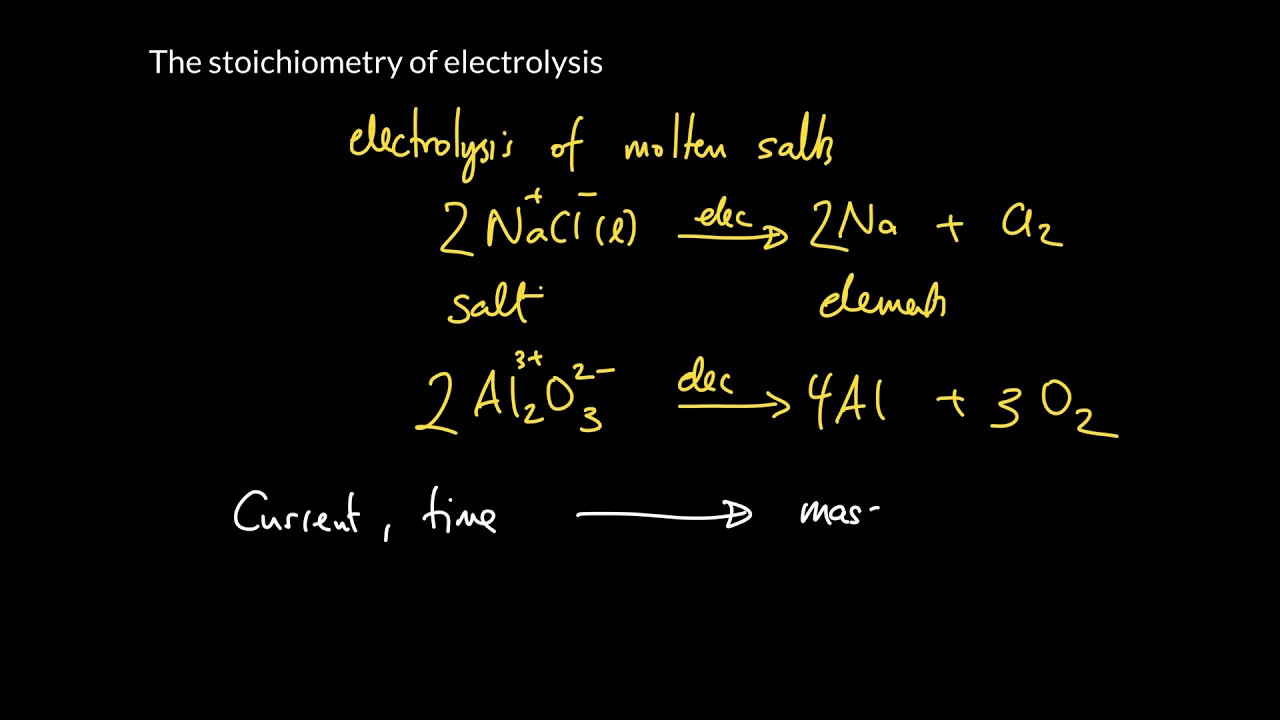 The stoichiometry of electrolysis
electrolysis of molten salts
2Na⁺Cl⁻(l) elec → 2Na + Cl₂
salt elements
2Al₂³⁺O₃²⁻ elec → 4Al + 3O₂
Current, time → mas